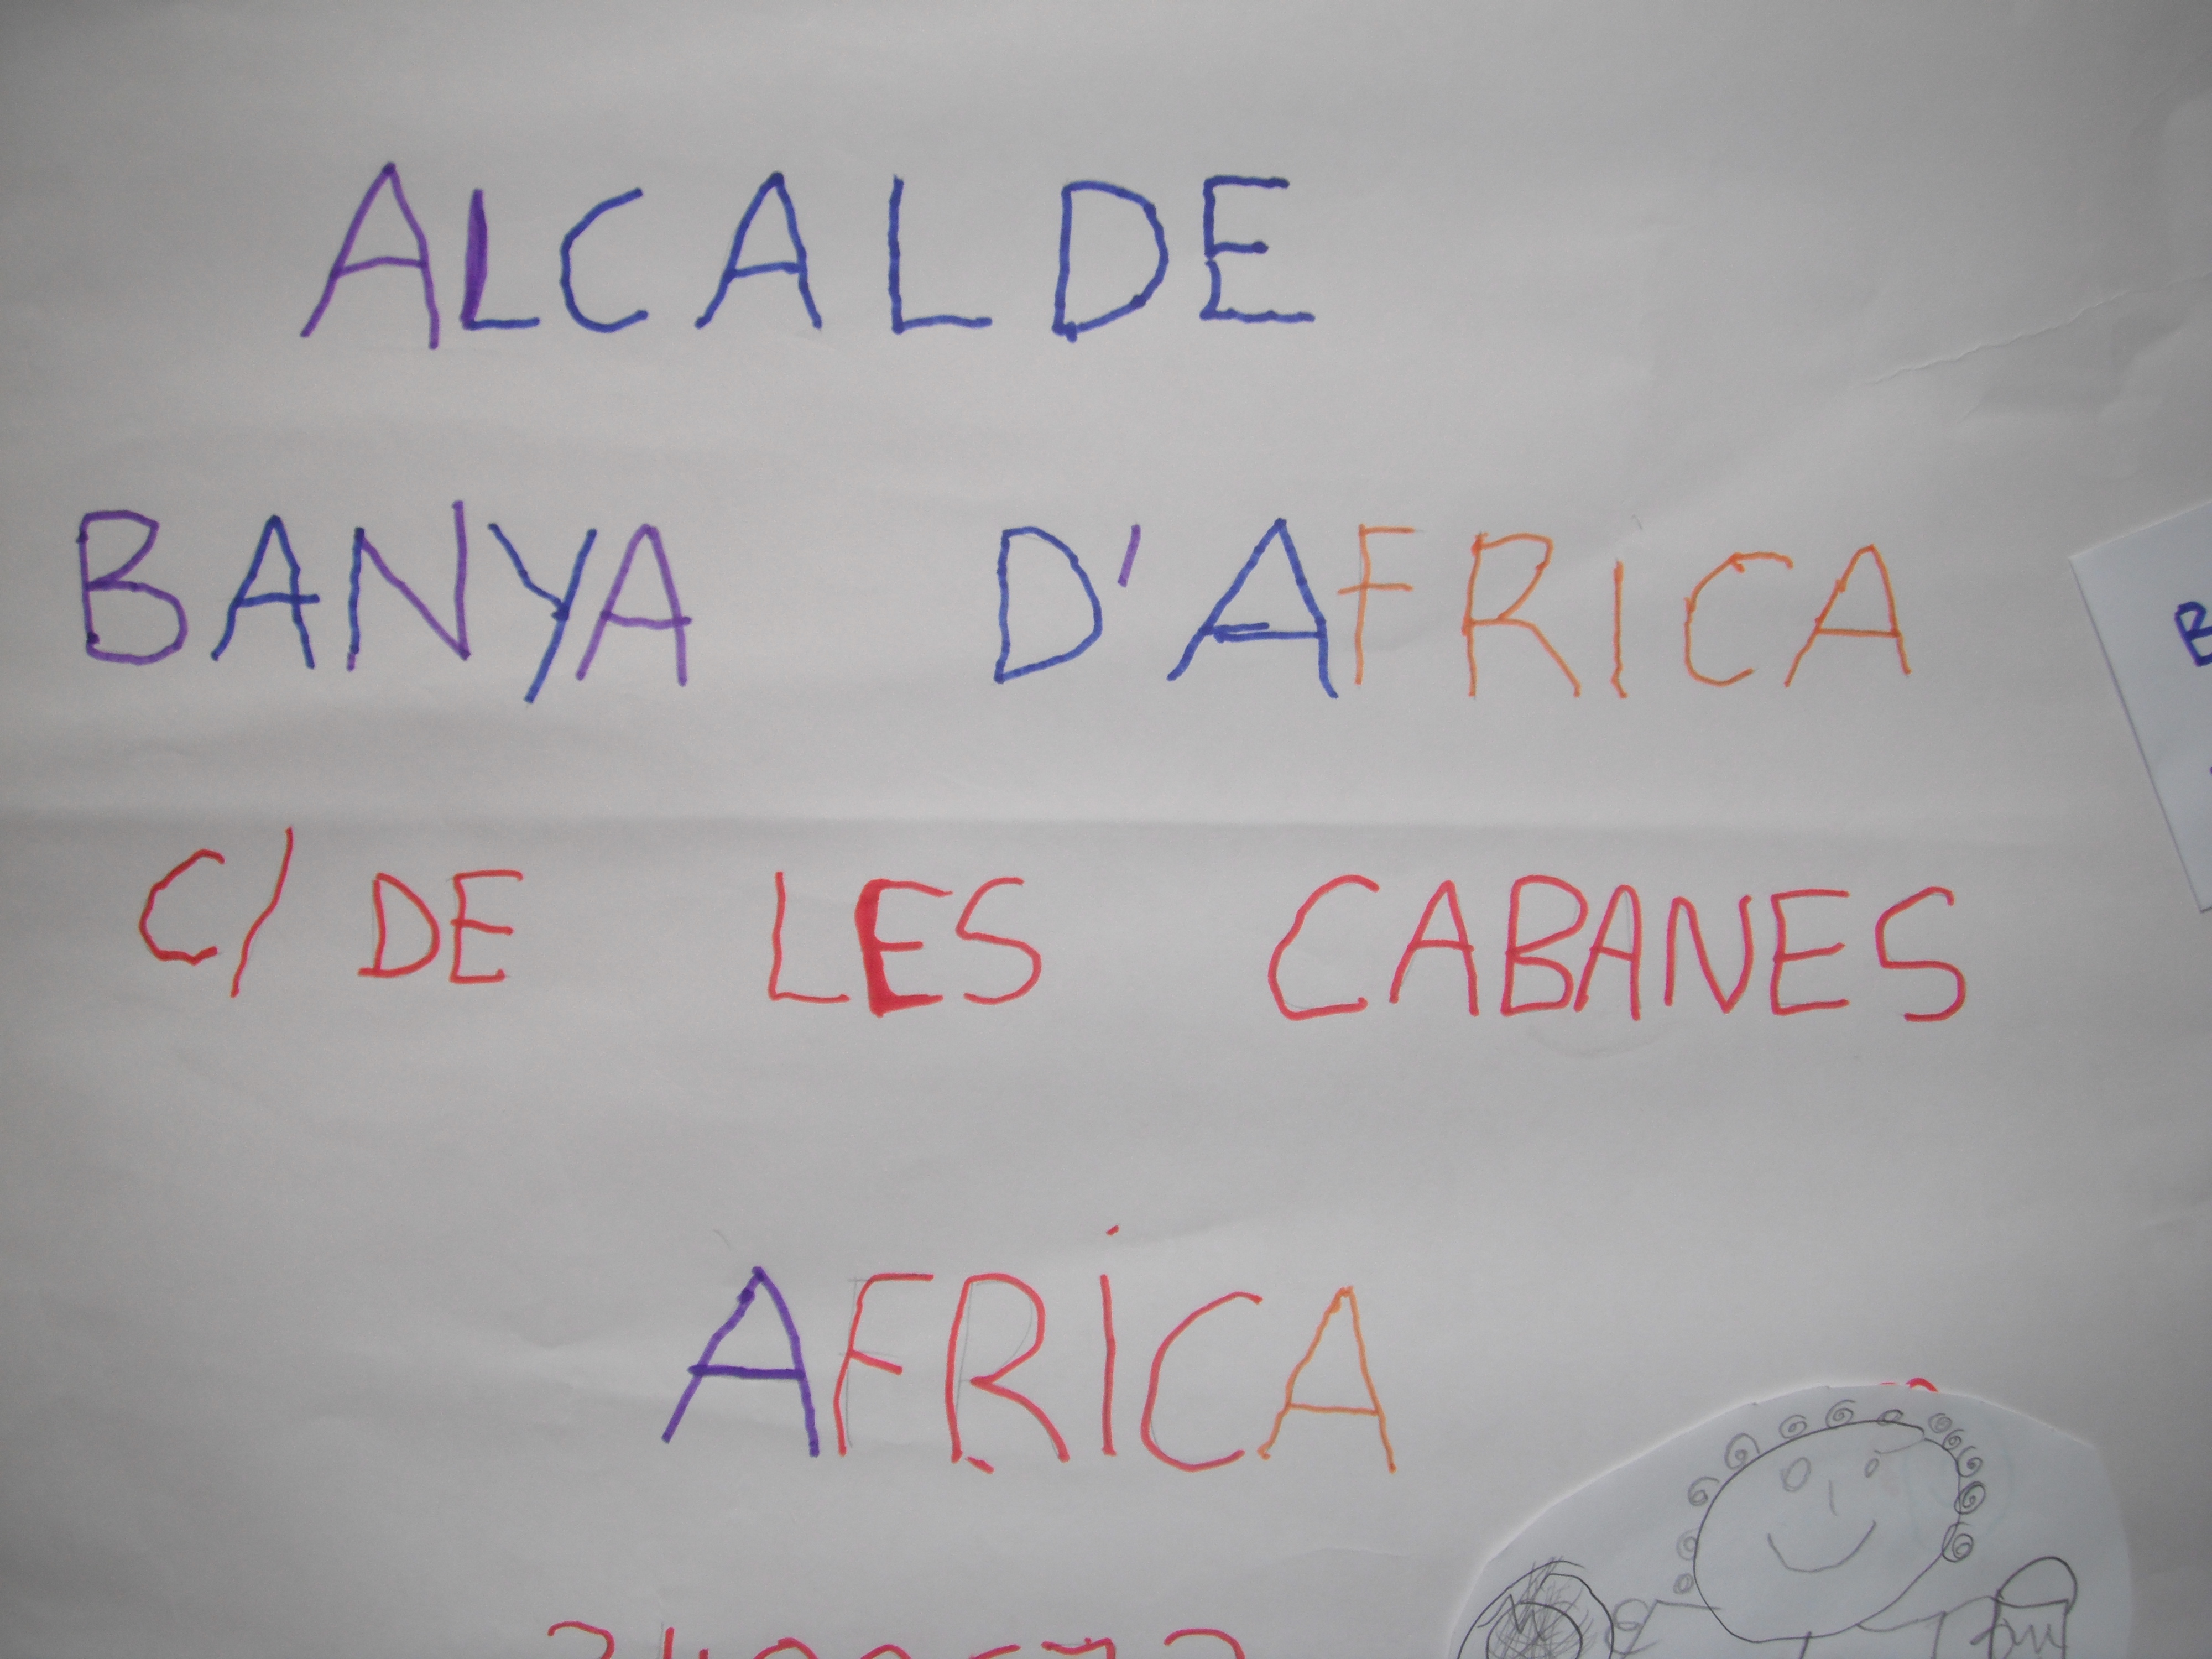 ALCALDE
BANYA D'AFRICA
C/ DE LES CABANES
AFRİCA